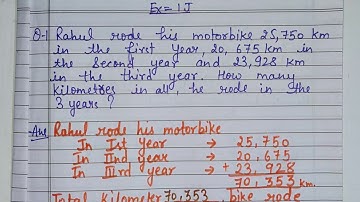 Ex = 1J
Q-1 Rahul rode his motorbike 25,750 km
in the first year, 20,675 km in
the second year and 23,928 km
in the third year. How many
kilometres in all, he rode in the
3 years?
Ans Rahul rode his motorbike
In Ist year → 25,750
In IInd year → 20,675
In IIIrd year → + 23,928
70,353 km.
Total kilometer 70,353 bike rode